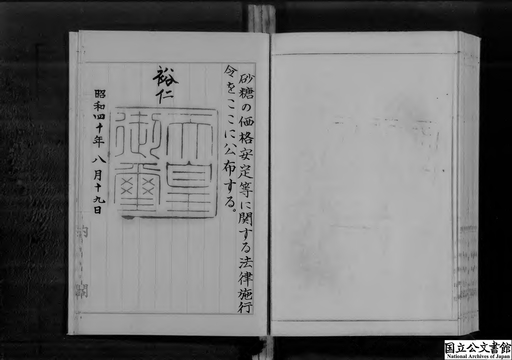 砂糖の価格安定等に関する法律施行
令をここに公布する。
裕仁
天皇
御璽
昭和四十年八月十九日
国立公文書館
National Archives of Japan